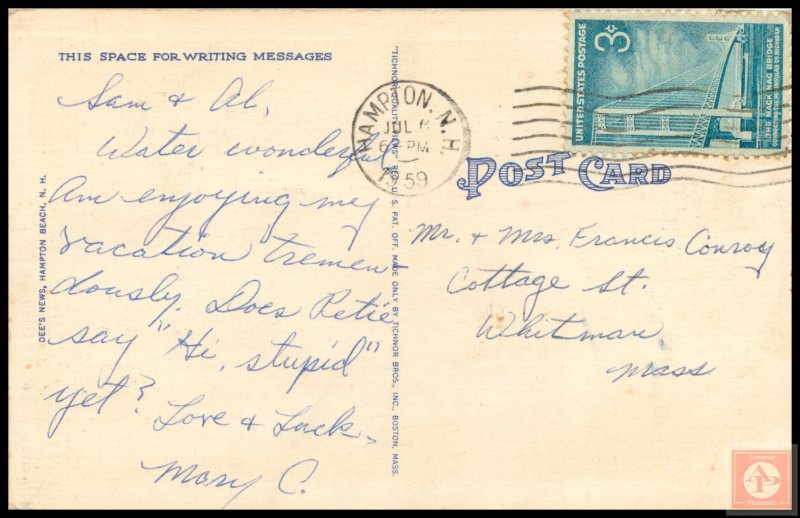 THIS SPACE FOR WRITING MESSAGES
Sam & Al,
Water wonderful
Am enjoying my
vacation tremen-
dously. Does Petie
say "Hi, stupid"
yet?
Love & Luck,
Mary C.
DEE'S NEWS, HAMPTON BEACH, N. H.
"TICHNOR QUALITY VIEWS" REG. U. S. PAT. OFF. MADE ONLY BY TICHNOR BROS., INC., BOSTON, MASS.
HAMPTON, N.H.
JUL 6
PM
1959
UNITED STATES POSTAGE
3¢
THE MACKINAC BRIDGE
CONNECTING THE PENINSULAS OF MICHIGAN
POST CARD
Mr. & Mrs. Francis Conroy
Cottage St.
Whitman
Mass
Ansonia
Philatelic